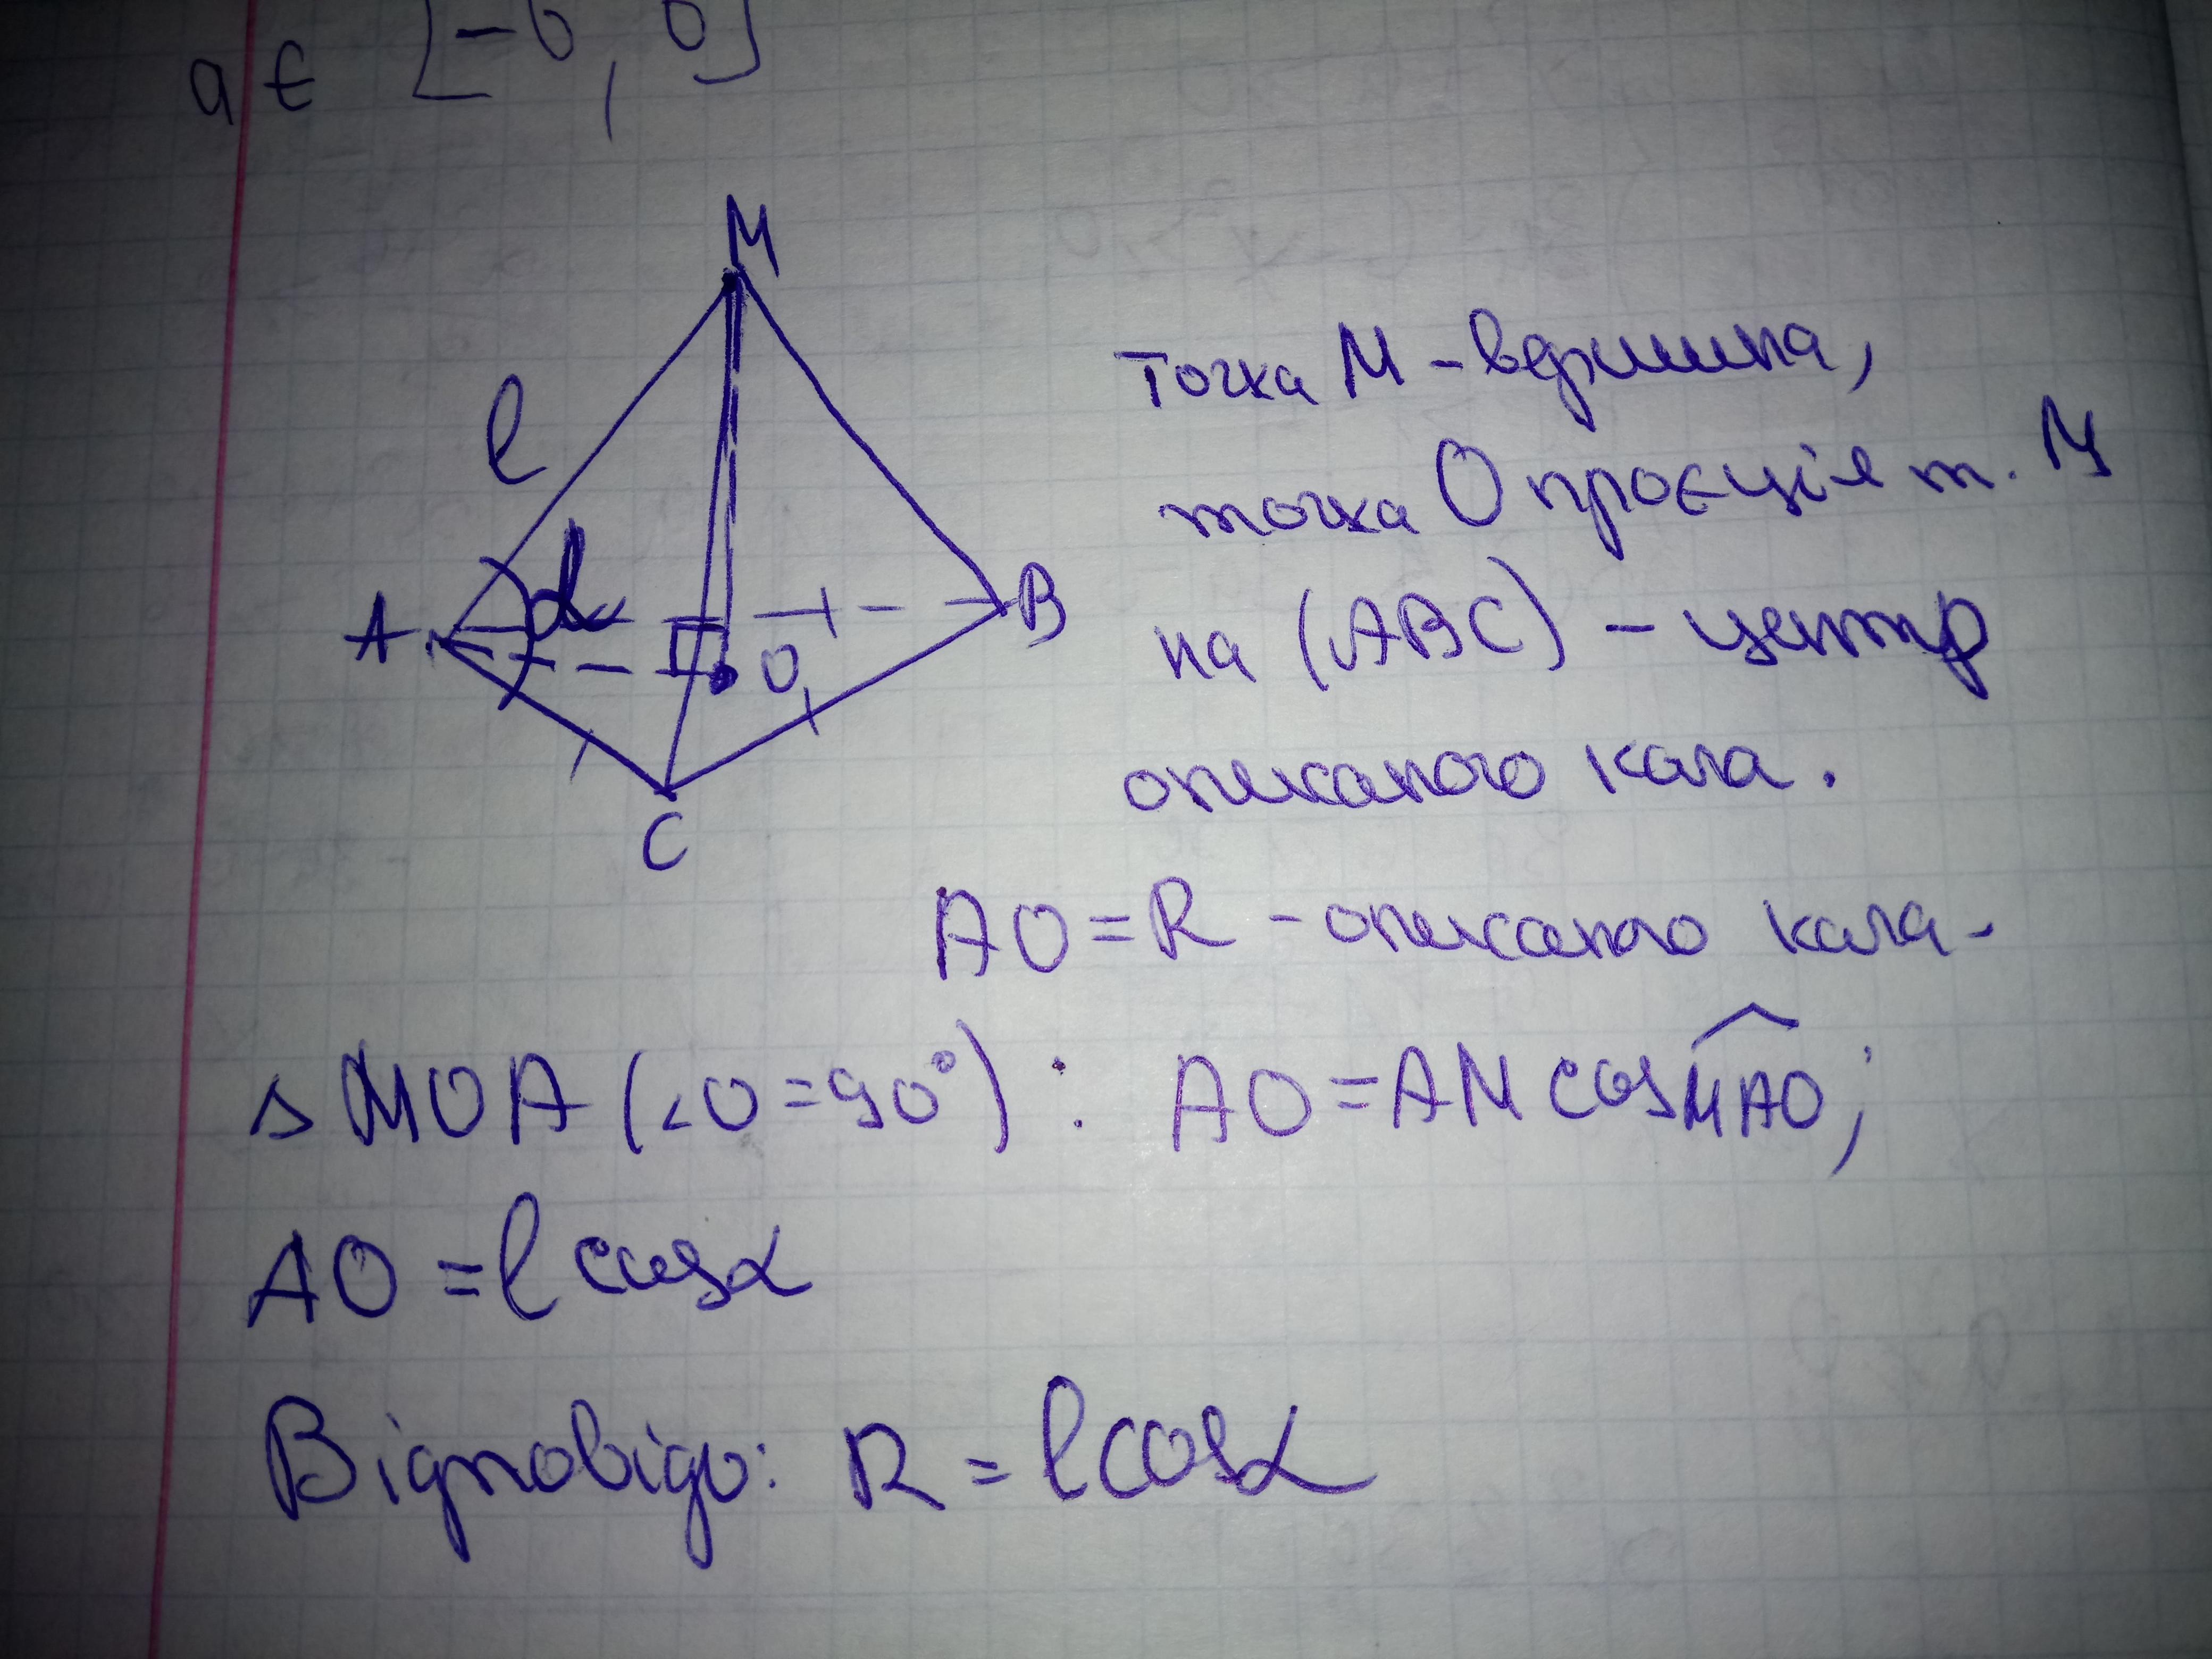 a ∈ [-6, 6]
M
l
α
A
B
O
C
Точка M - вершина,
точка O проєція т. M
на (ABC) - центр
описаного кола.
AO = R - описаного кола.
△ MOA (∠O = 90°) : AO = AM cos MAO;
AO = l cos α
Відповідь: R = l cos α